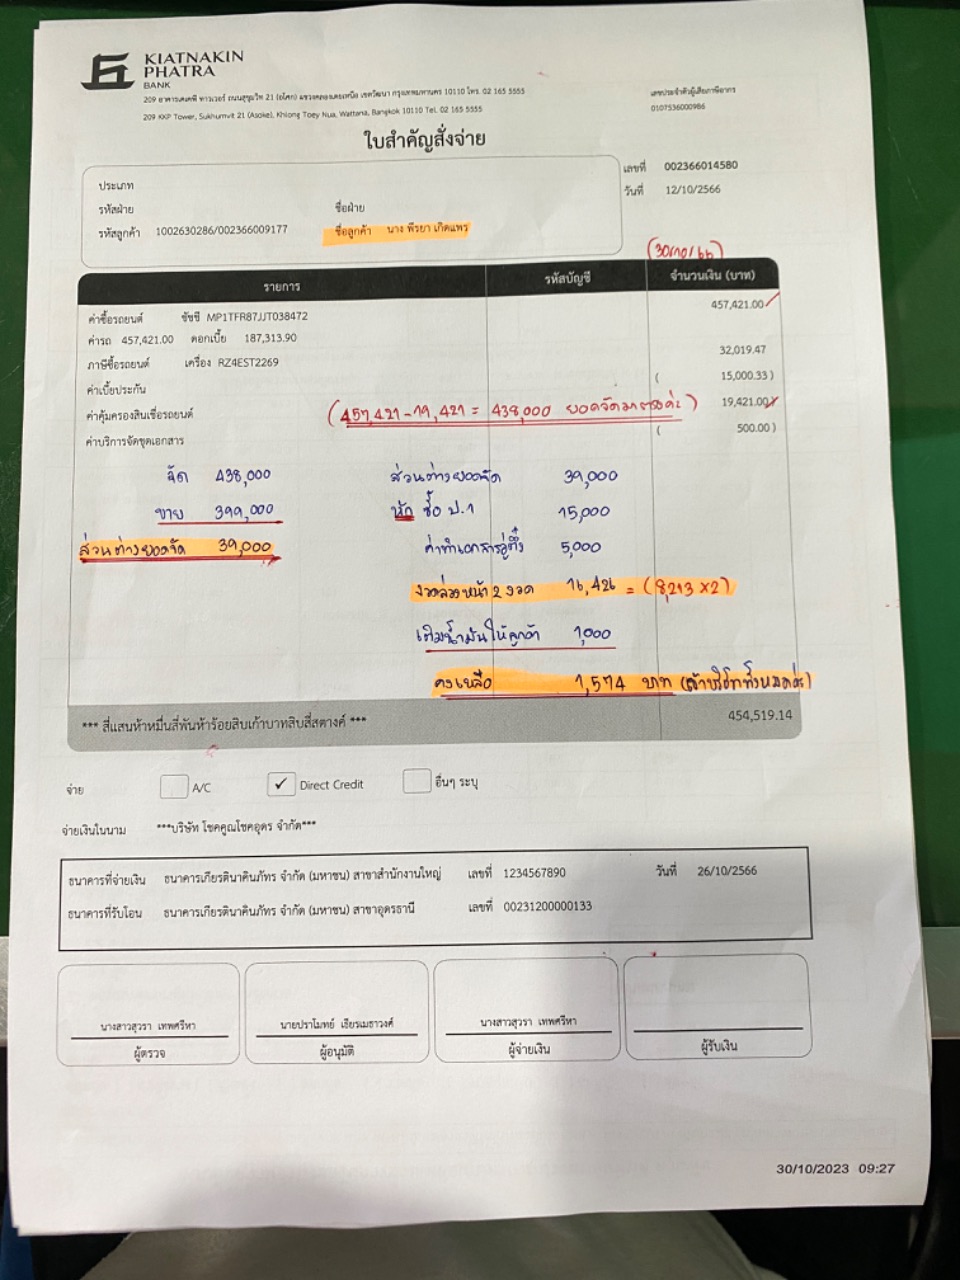 KIATNAKIN
PHATRA
BANK
209 อาคารเคเคพี ทาวเวอร์ ถนนสุขุมวิท 21 (อโศก) แขวงคลองเตยเหนือ เขตวัฒนา กรุงเทพมหานคร 10110 โทร. 02 165 5555
209 KKP Tower, Sukhumvit 21 (Asoke), Khlong Toey Nua, Wattana, Bangkok 10110 Tel. 02 165 5555
เลขประจำตัวผู้เสียภาษีอากร
0107536000986
ใบสำคัญสั่งจ่าย
เลขที่ 002366014580
วันที่ 12/10/2566
ประเภท
รหัสฝ่าย ชื่อฝ่าย
รหัสลูกค้า 1002630286/002366009177 ชื่อลูกค้า นาง พีรยา เกิดแพร
(30/10/66)
รายการ รหัสบัญชี จำนวนเงิน (บาท)
ค่าซื้อรถยนต์ ชัชซี MP1TFR87JJT038472 457,421.00
ค่ารถ 457,421.00 ดอกเบี้ย 187,313.90
ภาษีซื้อรถยนต์ เครื่อง RZ4EST2269 32,019.47
ค่าเบี้ยประกัน ( 15,000.33)
ค่าคุ้มครองสินเชื่อรถยนต์ (457,421-19,421 = 438,000 ยอดจัดมาตรงค่ะ) 19,421.00
ค่าบริการจัดชุดเอกสาร ( 500.00)
จัด 438,000 ส่วนต่างยอดจัด 39,000
ขาย 399,000 หัก ซื้อ ป.1 15,000
ส่วนต่างยอดจัด 39,000 ค่าทำเอกสารกู้กี๋ 5,000
งวดล่วงหน้า 2 งวด 16,426 = (8,213 x2)
เติมน้ำมันให้ลูกค้า 1,000
คงเหลือ 1,574 บาท (เข้าบริษัททั้งหมดค่ะ)
*** สี่แสนห้าหมื่นสี่พันห้าร้อยสิบเก้าบาทสิบสี่สตางค์ *** 454,519.14
จ่าย A/C ✓ Direct Credit อื่นๆ ระบุ
จ่ายเงินในนาม ***บริษัท โชคคูณโชคอุดร จำกัด***
ธนาคารที่จ่ายเงิน ธนาคารเกียรตินาคินภัทร จำกัด (มหาชน) สาขาสำนักงานใหญ่ เลขที่ 1234567890 วันที่ 26/10/2566
ธนาคารที่รับโอน ธนาคารเกียรตินาคินภัทร จำกัด (มหาชน) สาขาอุดรธานี เลขที่ 00231200000133
นางสาวสุวรา เทพศรีหา นายปราโมทย์ เธียรเมธาวงศ์ นางสาวสุวรา เทพศรีหา
ผู้ตรวจ ผู้อนุมัติ ผู้จ่ายเงิน ผู้รับเงิน
30/10/2023 09:27